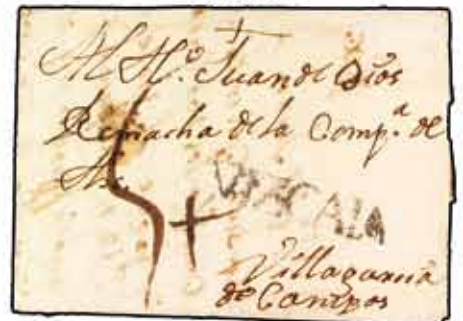 Al H.º Juan de Dios
Remacha de la Comp.ª de
Jhs.
VIZCAIA
Villagarcia
de Campos